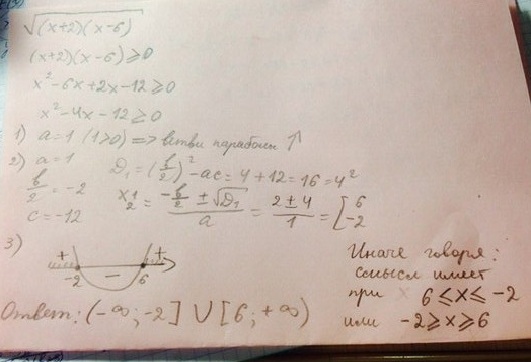 √(x+2)(x-6)
(x+2)(x-6)≥0
x²-6x+2x-12≥0
x²-4x-12≥0
1) a=1 (1>0) => ветви параболы ↑
2) a=1 D₁=(b/2)²-ac=4+12=16=4²
b/2=-2 x₁,₂=(-b/2±√D₁)/a=(2±4)/1=[6
c=-12 -2
3)
+ - +
-2 6
Ответ: (-∞;-2] ∪ [6;+∞)
Иначе говоря:
смысл имеет
при 6≤x≤-2
или -2≥x≥6